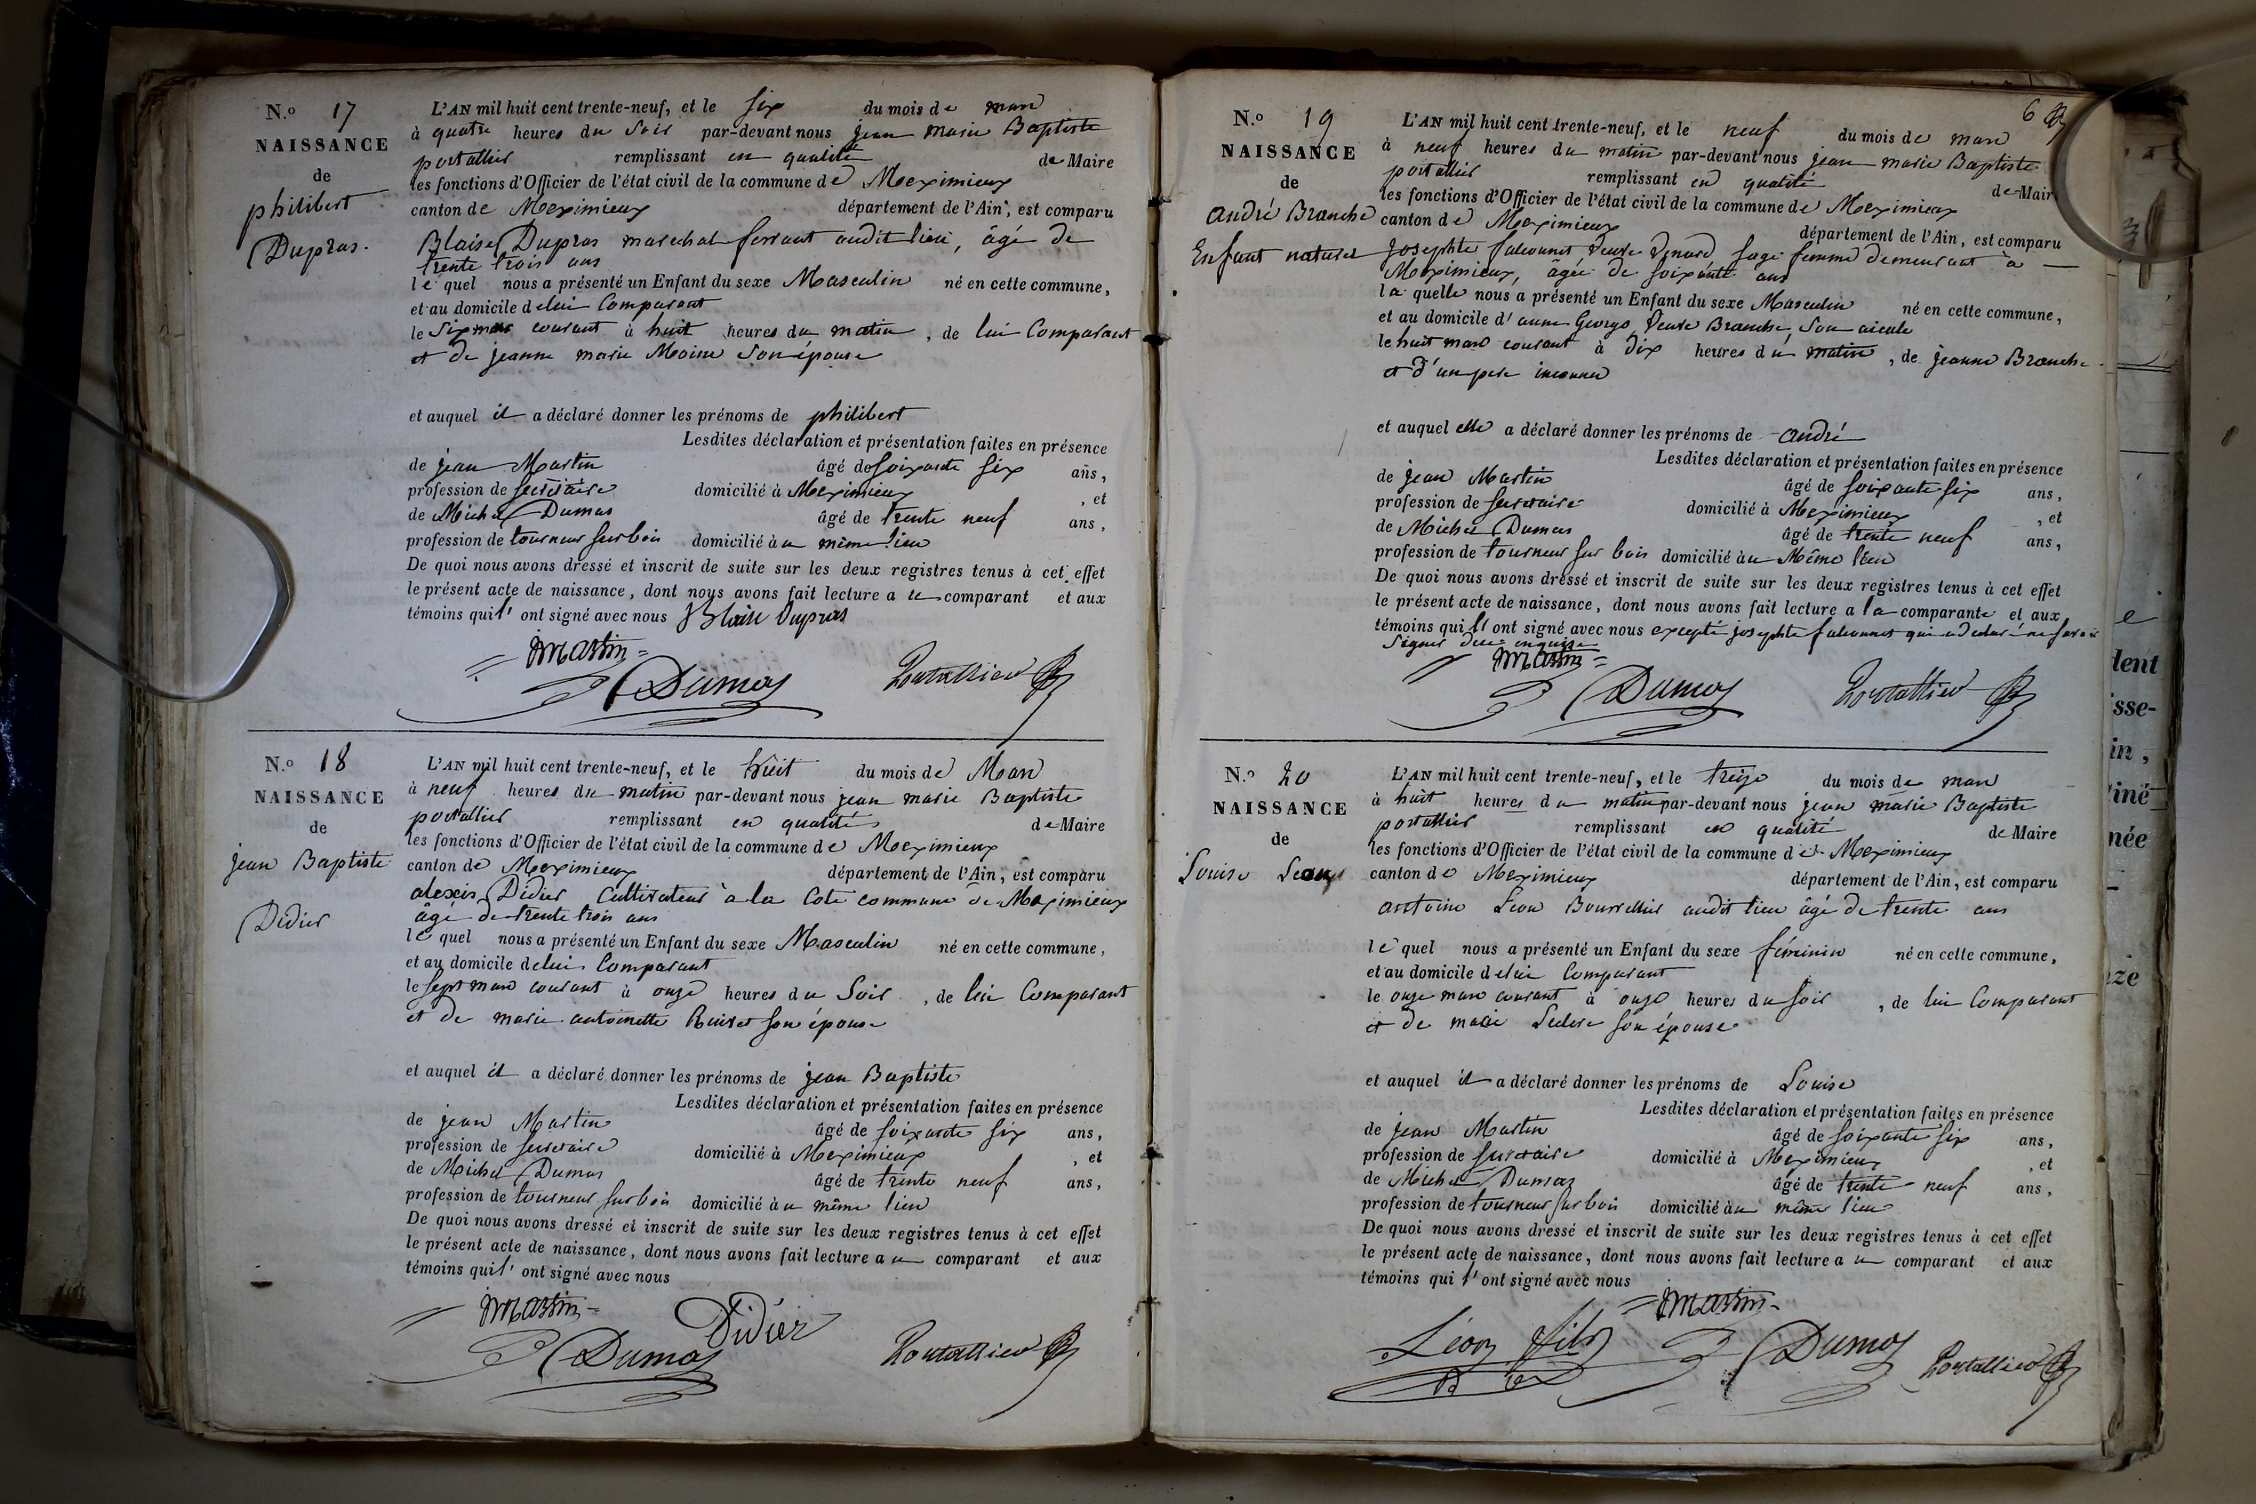 N.o 17
NAISSANCE
de
philibert
Dupras.
L'AN mil huit cent trente-neuf, et le six du mois de mars
à quatre heures du soir par-devant nous jean marie Baptiste
portallier remplissant en qualité de Maire
les fonctions d'Officier de l'état civil de la commune de Meximieux
canton de Meximieux département de l'Ain, est comparu
Blaise Dupras marechal ferrant audit lieu, âgé de
trente trois ans
le quel nous a présenté un Enfant du sexe Masculin né en cette commune,
et au domicile de lui Comparant
le six mars courant à huit heures du matin, de lui Comparant
et de jeanne marie Moine son épouse
et auquel il a déclaré donner les prénoms de philibert
Lesdites déclaration et présentation faites en présence
de jean Martin âgé de soixante six ans,
profession de secretaire domicilié à Meximieux, et
de Michel Dumas âgé de trente neuf ans,
profession de tourneur sur bois domicilié au même lieu
De quoi nous avons dressé et inscrit de suite sur les deux registres tenus à cet effet
le présent acte de naissance, dont nous avons fait lecture au comparant et aux
témoins qui l' ont signé avec nous Blaise Dupras
JMartin
Dumas Portallier
N.o 18
NAISSANCE
de
jean Baptiste
Didier
L'AN mil huit cent trente-neuf, et le huit du mois de Mars
à neuf heures du matin par-devant nous jean marie Baptiste
portallier remplissant en qualité de Maire
les fonctions d'Officier de l'état civil de la commune de Meximieux
canton de Meximieux département de l'Ain, est comparu
alexis Didier Cultivateur à la Cote commune de Meximieux
âgé de trente trois ans
le quel nous a présenté un Enfant du sexe Masculin né en cette commune,
et au domicile de lui Comparant
le sept mars courant à onze heures du Soir, de lui Comparant
et de marie antoinette son épouse
et auquel il a déclaré donner les prénoms de jean Baptiste
Lesdites déclaration et présentation faites en présence
de jean Martin âgé de soixante six ans,
profession de secretaire domicilié à Meximieux, et
de Michel Dumas âgé de trente neuf ans,
profession de tourneur sur bois domicilié au même lieu
De quoi nous avons dressé et inscrit de suite sur les deux registres tenus à cet effet
le présent acte de naissance, dont nous avons fait lecture au comparant et aux
témoins qui l' ont signé avec nous
JMartin Didier
Dumas Portallier
6
N.o 19
NAISSANCE
de
andré Branche
Enfant naturel
L'AN mil huit cent trente-neuf, et le neuf du mois de mars
à neuf heures du matin par-devant nous jean marie Baptiste
portallier remplissant en qualité de Mair
les fonctions d'Officier de l'état civil de la commune de Meximieux
canton de Meximieux département de l'Ain, est comparu
Josephte falconnet Veuve sage femme demeurant à
Meximieux, âgée de soixante ans
la quelle nous a présenté un Enfant du sexe Masculin né en cette commune,
et au domicile d'anne Georges Veuve Branche, son aieule
le huit mars courant à dix heures du matin, de jeanne Branche
et d'un pere inconnu
et auquel elle a déclaré donner les prénoms de andré
Lesdites déclaration et présentation faites en présence
de jean Martin âgé de soixante six ans,
profession de secretaire domicilié à Meximieux, et
de Michel Dumas âgé de trente neuf ans,
profession de tourneur sur bois domicilié au Même lieu
De quoi nous avons dressé et inscrit de suite sur les deux registres tenus à cet effet
le présent acte de naissance, dont nous avons fait lecture a la comparante et aux
témoins qui l' ont signé avec nous excepté josephte falconnet qui a declaré ne savoir
signer de ce enquise
JMartin
Dumas Portallier
N.o 20
NAISSANCE
de
Louise Leon
L'AN mil huit cent trente-neuf, et le treize du mois de mars
à huit heures du matin par-devant nous jean marie Baptiste
portallier remplissant en qualité de Maire
les fonctions d'Officier de l'état civil de la commune de Meximieux
canton de Meximieux département de l'Ain, est comparu
antoine Leon Bourrellier audit lieu âgé de trente ans
le quel nous a présenté un Enfant du sexe féminin né en cette commune,
et au domicile de lui Comparant
le onze mars courant à onze heures du soir, de lui Comparant
et de marie son épouse
et auquel il a déclaré donner les prénoms de Louise
Lesdites déclaration et présentation faites en présence
de jean Martin âgé de soixante six ans,
profession de secretaire domicilié à Meximieux, et
de Michel Dumas âgé de trente neuf ans,
profession de tourneur sur bois domicilié au même lieu
De quoi nous avons dressé et inscrit de suite sur les deux registres tenus à cet effet
le présent acte de naissance, dont nous avons fait lecture au comparant et aux
témoins qui l' ont signé avec nous
JMartin
Léon fils Dumas Portallier
dent
sse-
in,
née